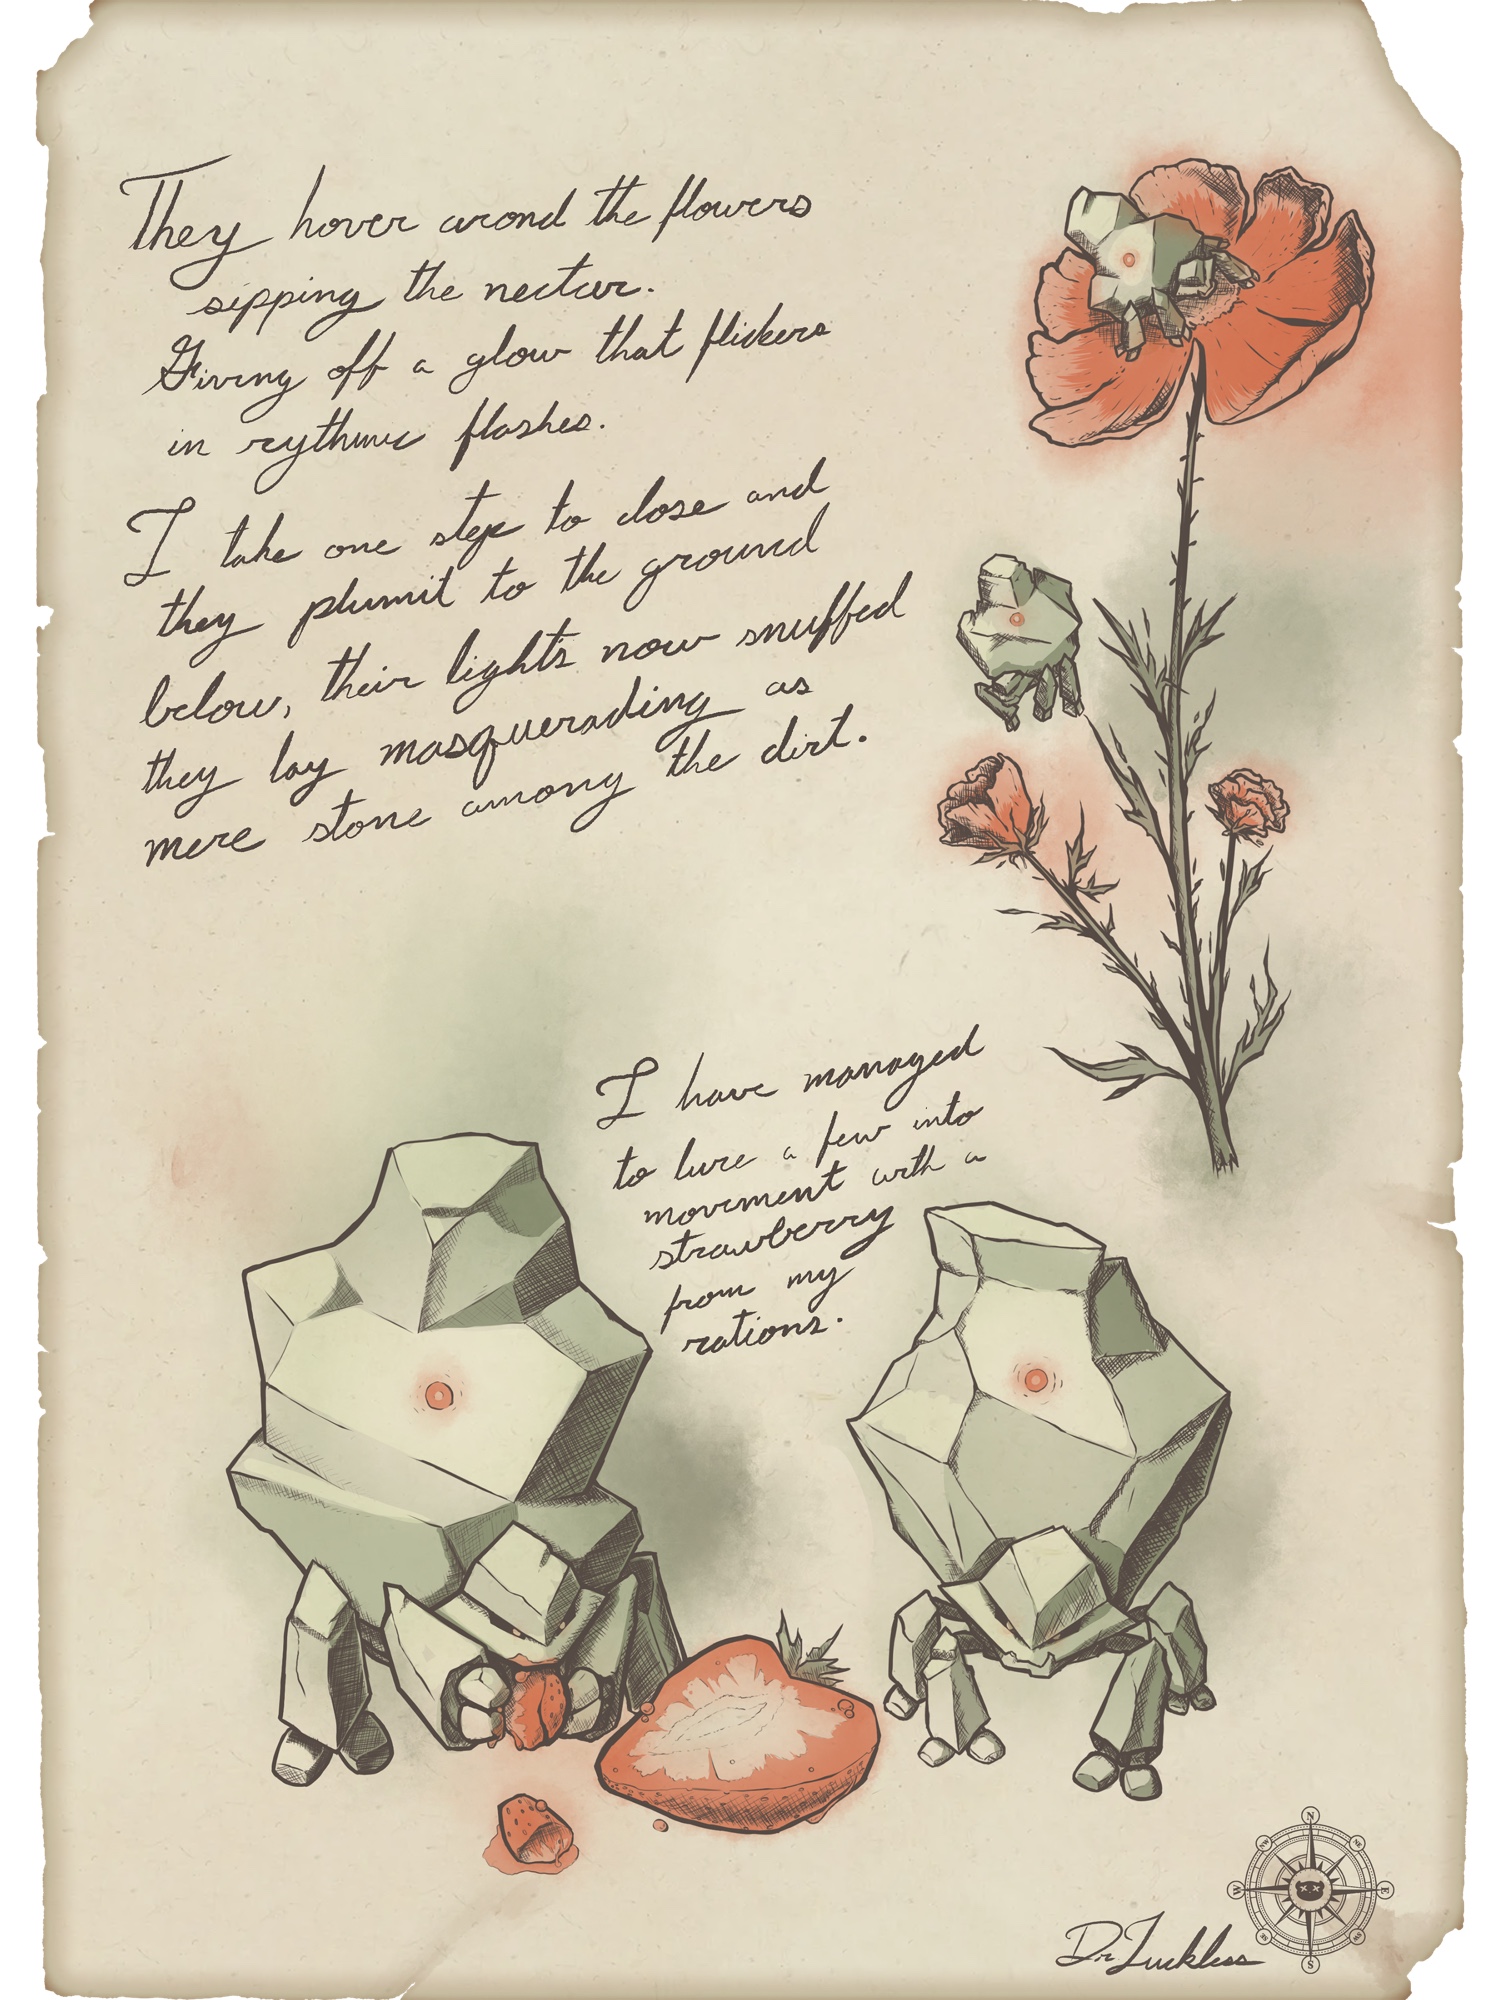 They hover arond the flowers
sipping the nectar.
Giving off a glow that flickers
in rythmic flashes.
I take one step to close and
they plumit to the ground
below, their lights now snuffed
they lay masquerading as
mere stone among the dirt.
I have managed
to lure a few into
movement with a
strawberry
from my
rations.
N
NW NE
W E
SW SE
S
Dr. Luckless